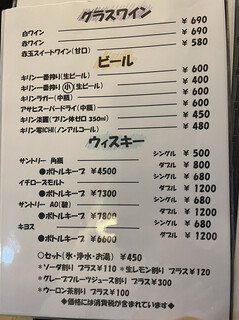 グラスワイン
白ワイン ¥690
赤ワイン ¥690
赤玉スイートワイン(甘口) ¥580
ビール
キリン一番搾り(生ビール) ¥600
キリン一番搾り 小(生ビール) ¥400
キリンラガー(中瓶) ¥600
アサヒスーパードライ(中瓶) ¥600
キリン淡麗(プリン体ゼロ 350ml) ¥450
キリン零ICHI(ノンアルコール) ¥480
ウィスキー
サントリー 角瓶 シングル ¥500
ダブル ¥800
●ボトルキープ ¥4500
イチローズモルト シングル ¥600
●ボトルキープ ¥7300 ダブル ¥1200
サントリー AO(碧) シングル ¥600
●ボトルキープ ¥7800 ダブル ¥1200
シングル ¥600
●ボトルキープ ¥6600 ダブル ¥1200
○セット(氷・浄水・お湯) ¥450
*ソーダ割り プラス¥110 *生レモン割り プラス¥120
*グレープフルーツジュース割り プラス¥300
*ウーロン茶割り プラス¥100
◆価格には消費税が含まれています◆